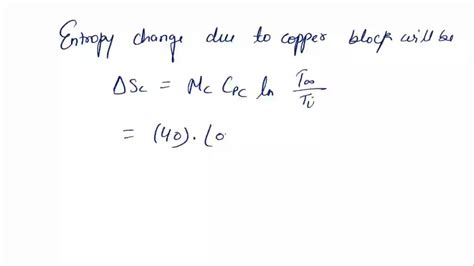 Entropy change due to copper block will be
ΔSc = Mc Cpc ln T∞/Ti
= (40). (0